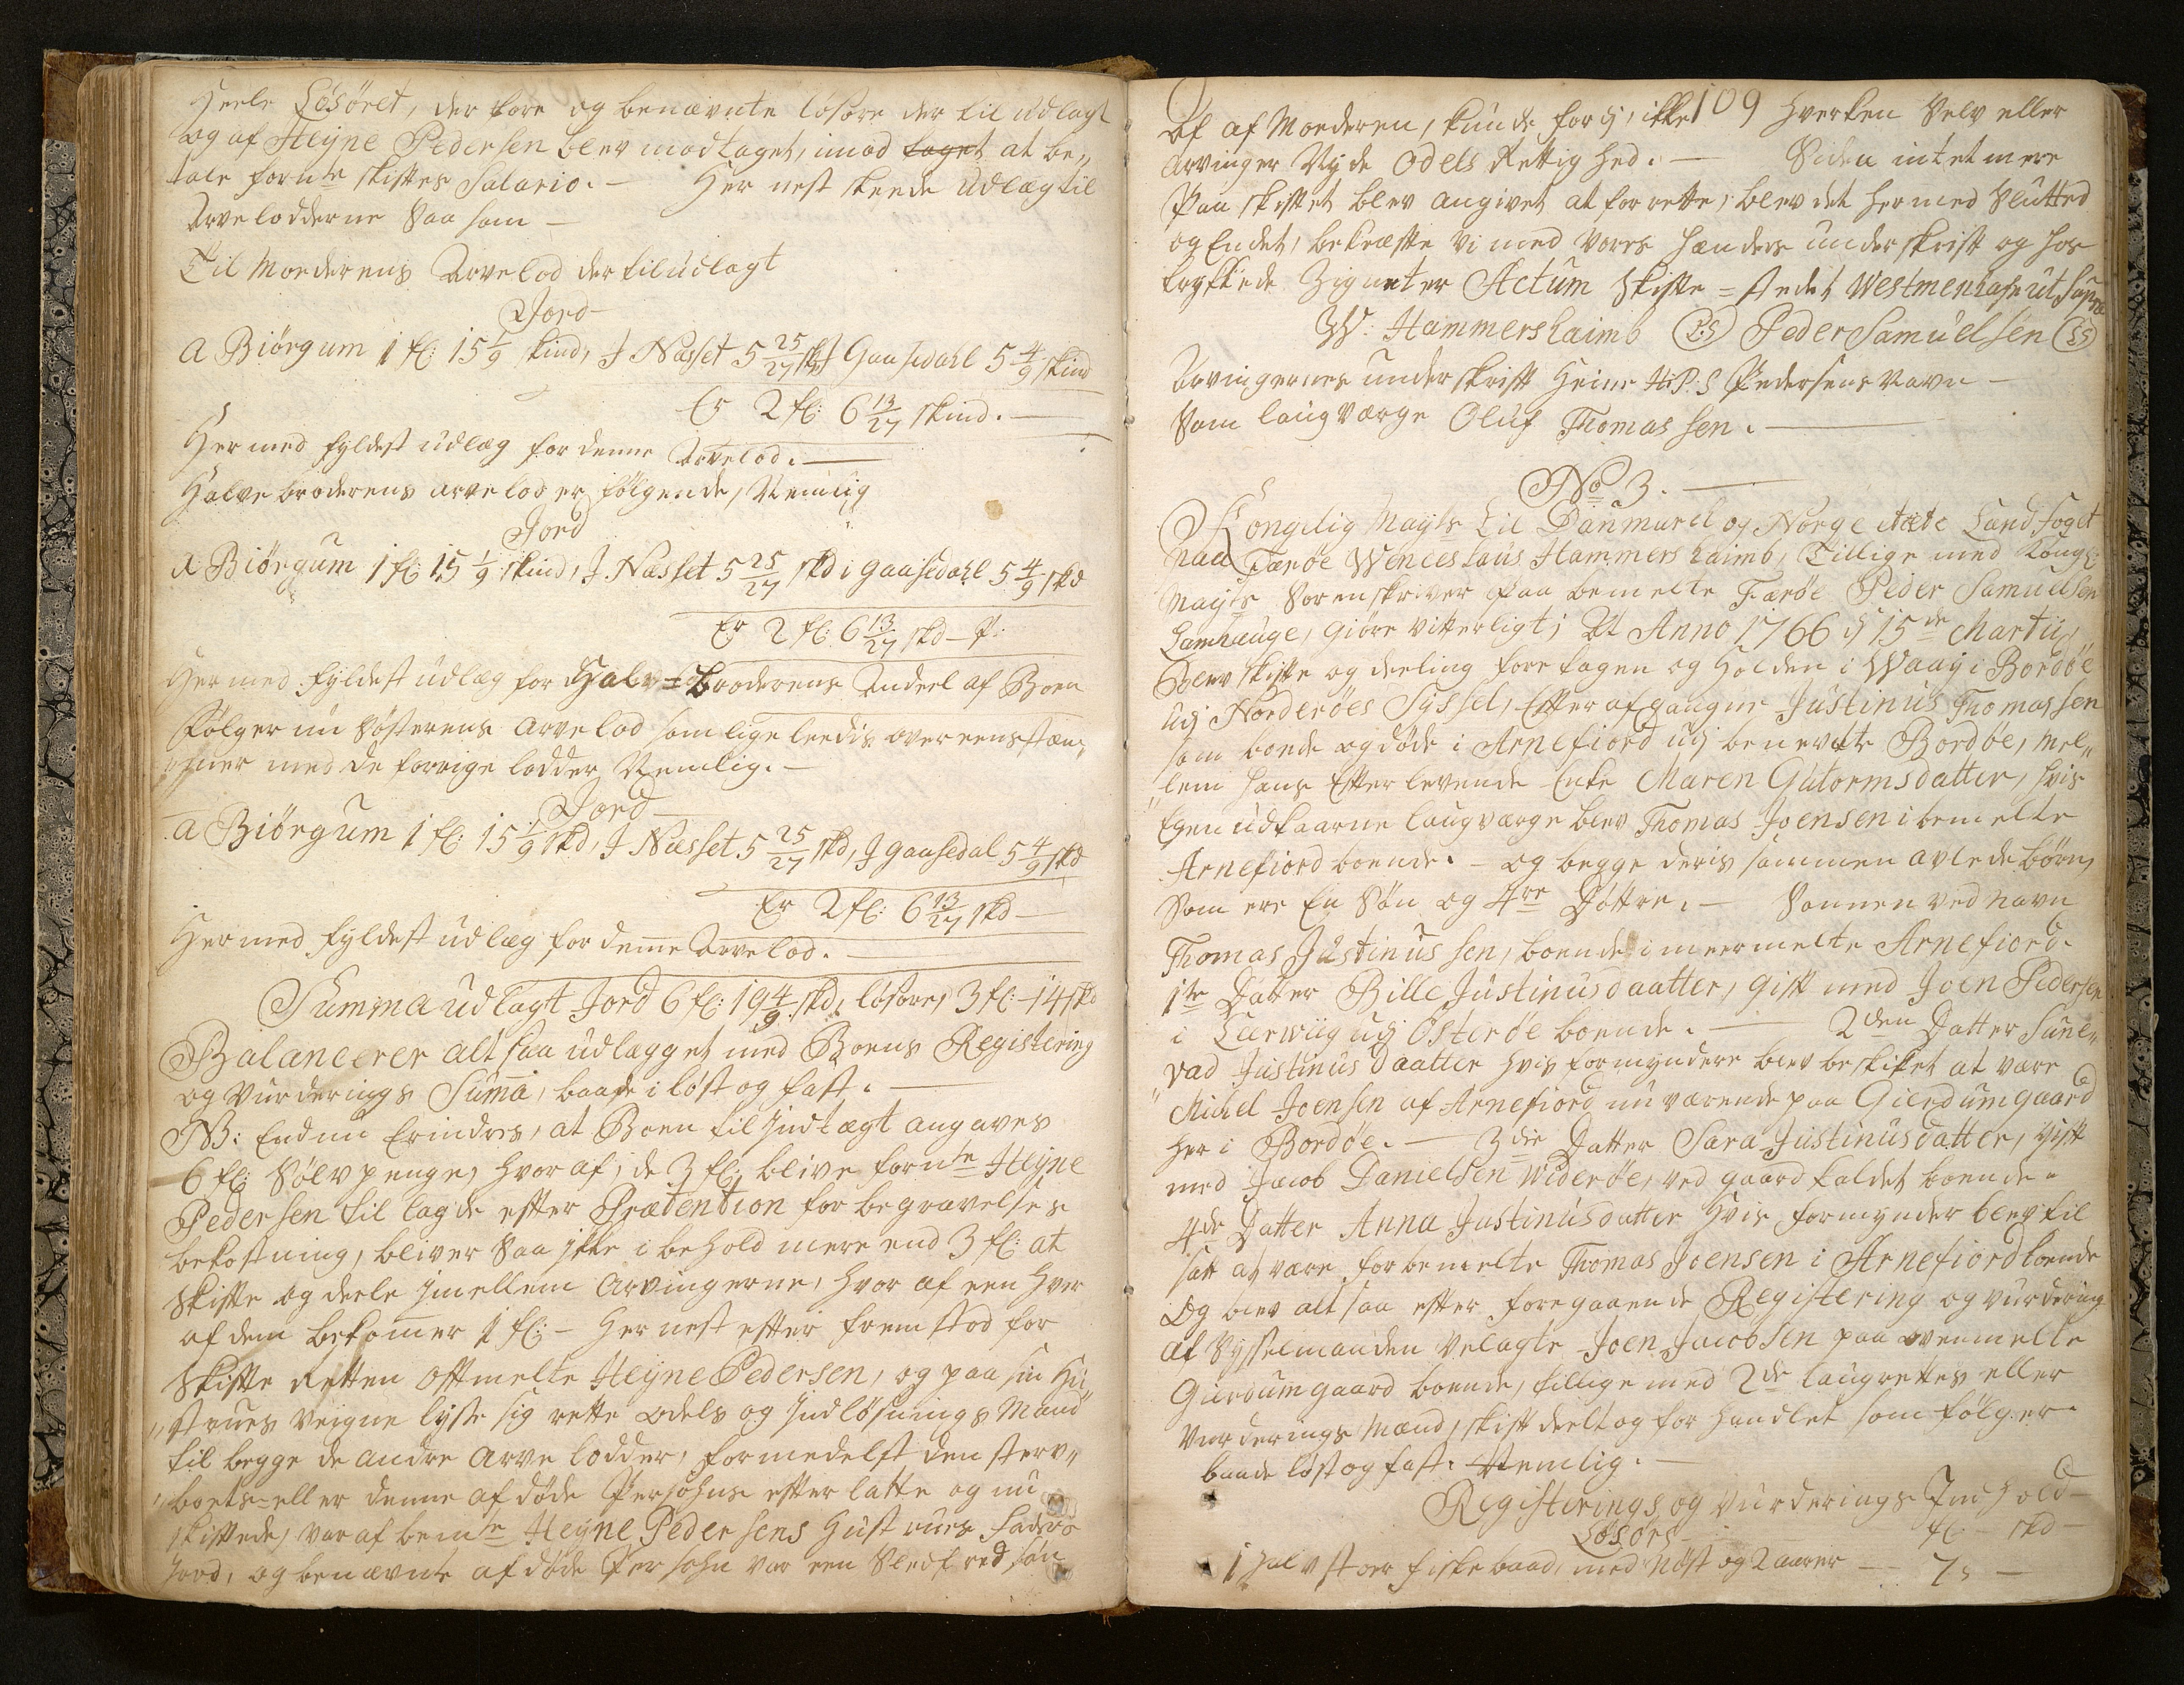 Heele Løsøret, der fore og benævnte løsøre der til udlagt
og af Heyne Pedersen blev modtaget, imod taget at be„
tale fornte skiftes Salario. – Her nest skeede udlæg til
Arvelodderne saa som –
Til Moederens Arvelod der til udlagt
Jord
A Biørgum 1 fl: 15 1/9 skind, J Næsset 5 25/27 sk J Gaasedahl 5 4/9 skind
Er 2 fl: 6 13/27 skind. –
Her med fyldest udlæg for denne Arvelod. –
Halvebroderens arvelod er følgende, Nemlig
Jord
A Biørgum 1 fl: 15 1/9 skind, J Næsset 5 25/27 skd i gaasedahl 5 4/9 skd
Er 2 fl: 6 13/27 skd –
Her med fyldest udlæg for Halv=Broderens Andeel af Boen
Følger nu Søsterens Arvelod som lige leedis overeensstem„
„mer med de forrige lodder Nemlig. –
Jord
A Biørgum 1 fl: 15 1/9 skd, J Næsset 5 25/27 skd, J gaasedal 5 4/9 skd
Er 2 fl: 6 13/27 skd –
Her med fyldest udlæg for denne Arvelod. –
Summa udlagt Jord 6 fl: 19 4/9 skd, løsøre, 3 fl: – 14 skd
Balanceerer alt saa udlægget med Boens Registering
og Vurderings Summa, baade i løst og fast. –
NB: Endnu Erindres, at Boen til Indtægt angaves
6 fl: Sølvpenge, hvor af, de 3 fl: blive fornte Heyne
Pedersen til lagde efter Prætention for begravelses
bekostning, bliver saa ikke i behold mere end 3 fl: at
Skifte og deele imellem Arvingerne, hvor af een hver
af dem bekommer 1 fl: – Her nest efter fremstod for
Skifte Retten offtmelte Heyne Pedersen, og paa sin Hu„
„strues veigne lyste sig rette odels og Indløsnings Mand
til begge de andre Arve lodder, formedelst den sterv„
„boets= eller denne afdøde Persohns efter latte og nu
skiftede, var af bemte Heyne Pedersens Hustrues Faders
Jord, og benævnte afdøde Persohn var een Slecfred søn
109
Af af Moederen, kunde fordj, ikke hverken Selv eller
Arvinger Nyde Odels Rettighed. – Siden intet mere
Paa skiftet blev angivet at forrette, blev det hermed Slutted
og Endet, bekræfte vi med vores hænders underskrift og hos
trykkede Zigneter Actum Skifte=stedet Westmenhafn ut supra
W: Hammershaimb (LS) Peder Samuelsen (LS)
Arvingernes underskrift Heine H.P.S Pedersens Navn –
Som laug Værge Oluf Thomassen. –
No 3. –
Kongelig Mayts til Danmarck og Norge etete Landfoget
paa Færøe Wenceslaus Hammershaimb, Tillige med Kongl:
Mayts Sorenskriver paa bemelte Færøe Peder Samuelsen
Lamhauge, giøre vitterligt; At Anno 1766 d 15de Martij,
Blev skifte og deeling foretagen og holden i Waag i Bordøe
udj Norderøes Syssel, Efter afgangne Justinus Thomassen
som boede og døde i Arnefiord udj benevnte Bordøe, mel„
„lem hans Efterlevende Enke Maren Gutormsdatter, hvis
Egen udkaarne laugværge blev Thomas Joensen i bemelte
Arnefiord boende. – og begge deris sammen avlede børn,
Som ere En Søn og 4re Døttre. – Sønnen ved navn
Thomas Justinussen, boende i meermelte Arnefiord.
1te Datter Bille Justinusdaatter, gift med Joen Pedersen
i Leerwiig udj Østerøe boende. – 2den Datter Sune„
„vad Justinusdaatter hvis formyndere blev beskiket at være
Michel Joensen af Arnefiord nu værende paa Gierdumgaard
her i Bordøe. – 3die Datter Sara Justinusdatter, gift
med Jacob Danielsen Widerøe, ved gaard kaldet boende.
4de Datter Anna Justinusdatter hvis formynder blev til
satt at være forbemelte Thomas Joensen i Arnefiord boende
Og blev alt saa efter foregaaende Registering og vurdering
af Sysselmanden Velagte Joen Jacobsen paa ovenmelte
Gierdumgaard boende, tillige med 2de laugrettes eller
Vurderings Mænd, skift deelt og forhandlet som følger
baade løst og fast. Nemlig. –
Registerings og Vurderings Indhold
Løsøre fl – skd –
1 halv stoer fiske baad, med Nøst og 2 aarer – 7, –